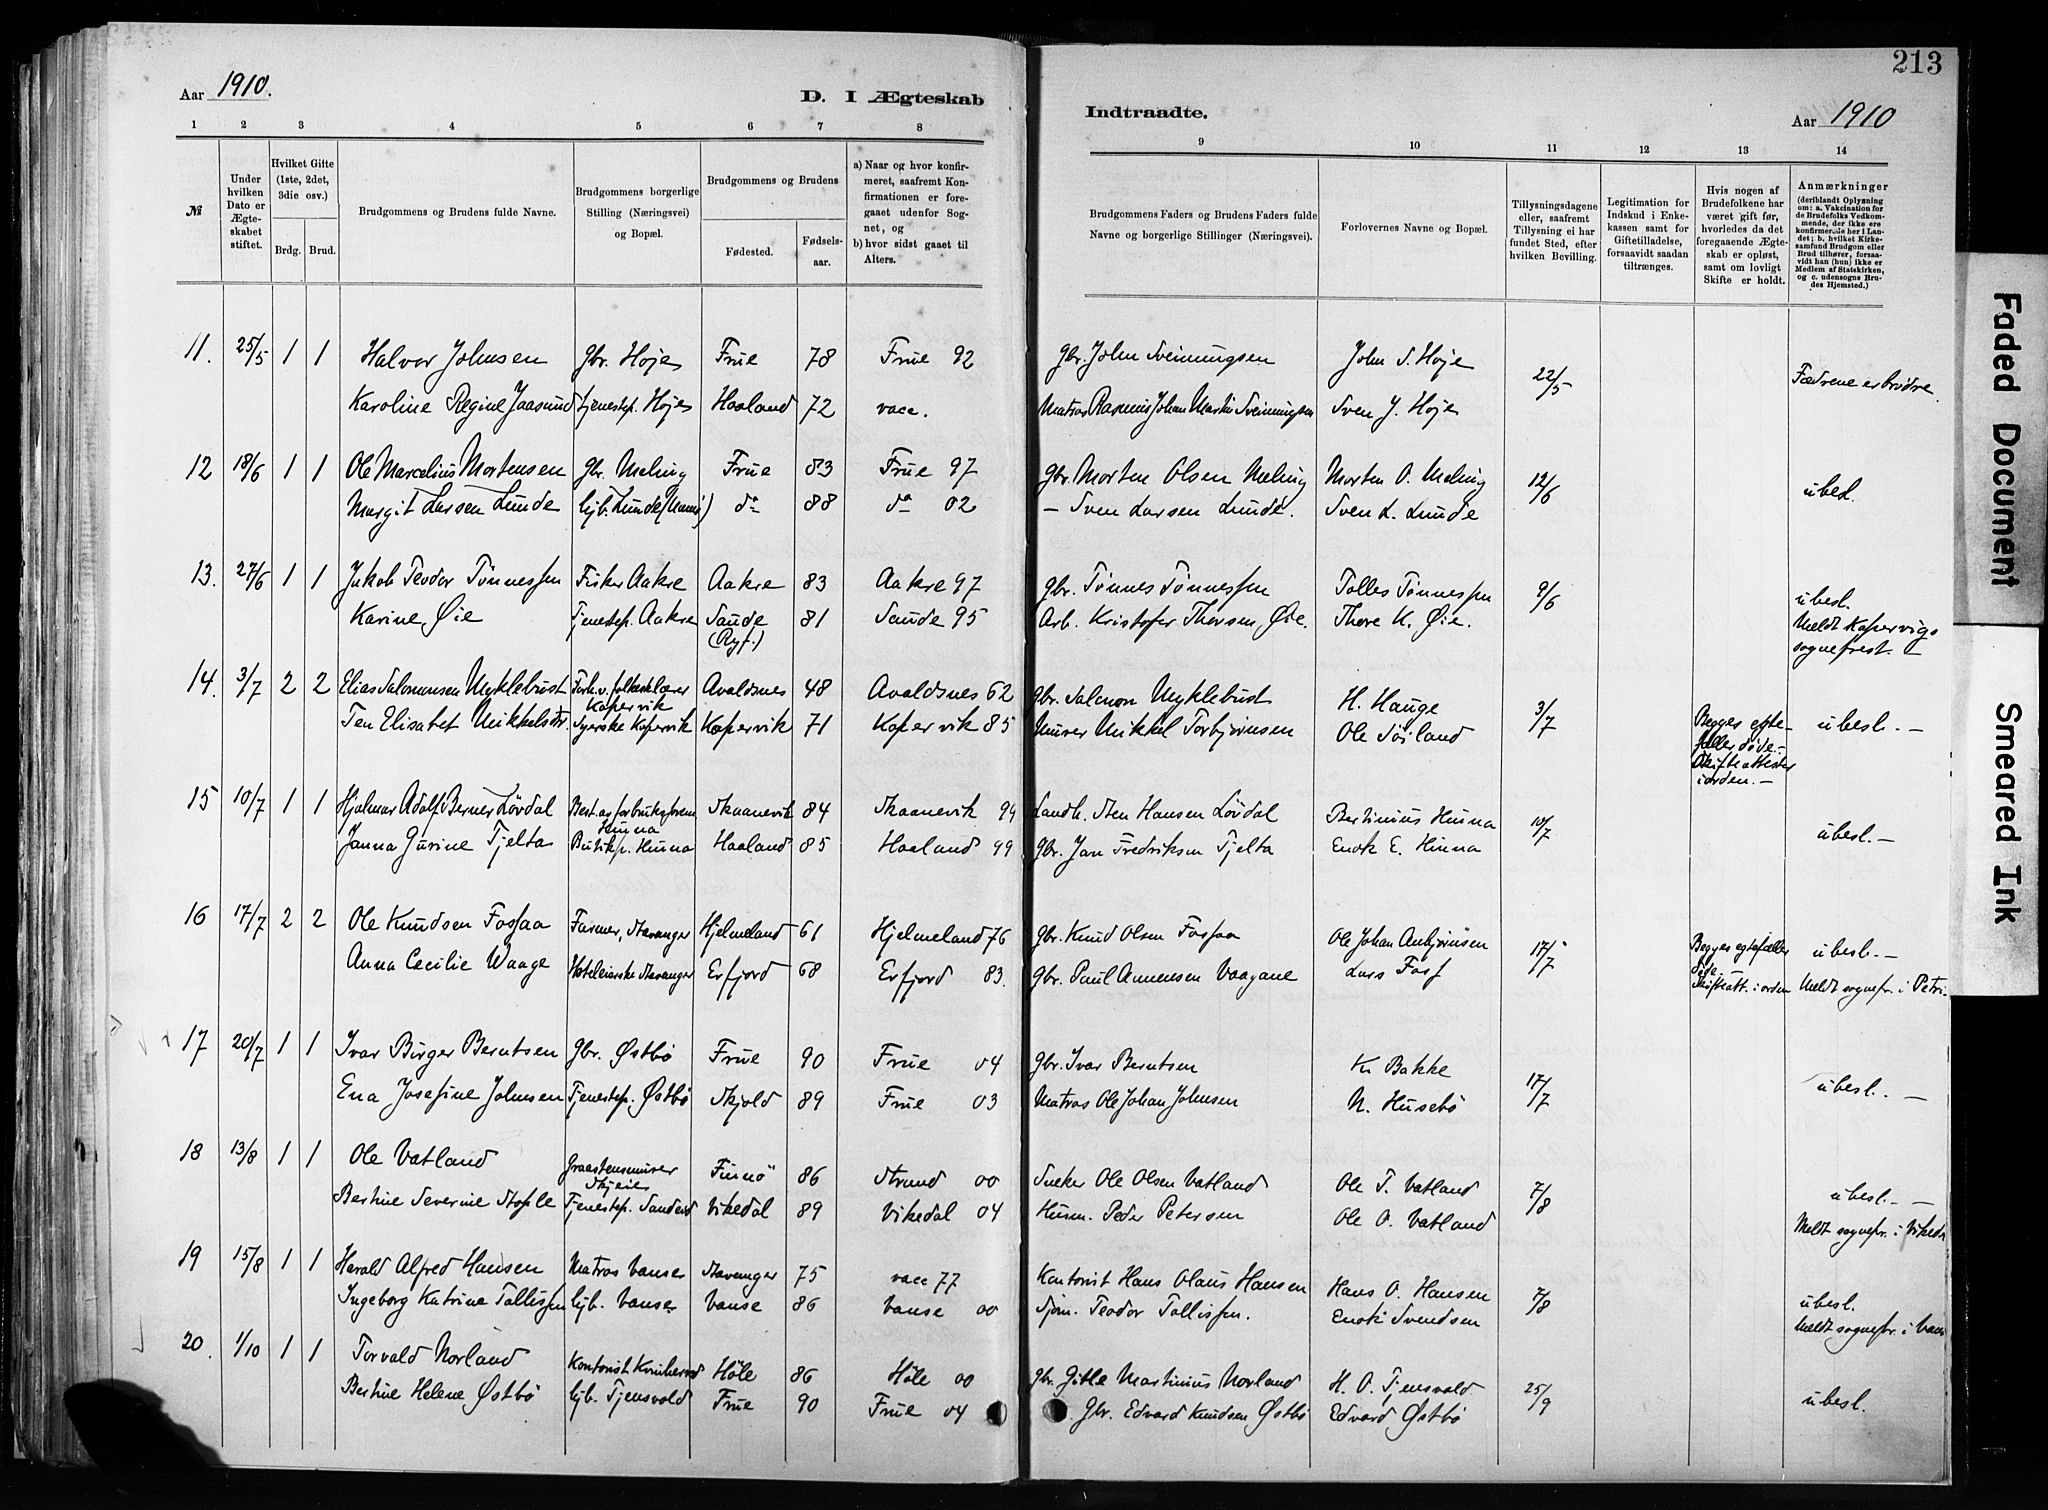 213
Aar 1910.
D. I Ægteskab
Indtraadte.
Aar 1910
1 2 3 4 5 6 7 8 9 10 11 12 13 14
№
Under hvilken Dato er Ægteskabet stiftet.
Hvilket Gifte (1ste, 2det, 3die osv.)
Brdg. Brud.
Brudgommens og Brudens fulde Navne.
Brudgommens borgerlige Stilling (Næringsvei) og Bopæl.
Brudgommens og Brudens
Fødested.
Fødselsaar.
a) Naar og hvor konfirmeret, saafremt Konfirmationen er foregaaet udenfor Sognet, og
b) hvor sidst gaaet til Alters.
Brudgommens Faders og Brudens Faders fulde Navne og borgerlige Stillinger (Næringsvei).
Forlovernes Navne og Bopæl.
Tillysningsdagene eller, saafremt Tillysning ei har fundet Sted, efter hvilken Bevilling.
Legitimation for Indskud i Enkekassen samt for Giftetilladelse, forsaavidt saadan tiltrænges.
Hvis nogen af Brudefolkene har været gift før, hvorledes da det foregaaende Ægteskab er opløst, samt om lovligt Skifte er holdt.
Anmærkninger (deriblandt Oplysning om: a. Vakcination for de Brudefolks Vedkommende, der ikke ere konfirmerede her i Landet; b. hvilket Kirkesamfund Brudgom eller Brud tilhører, forsaavidt han (hun) ikke er Medlem af Statskirken, og c. udensogns Brudes Hjemsted.)
11. 25/5 1 1 Halvor Johnsen gbr. Høje Frue 78 Frue 92 gbr. John Sveinungsen John S. Høje 22/5 Fædrene er brödre.
Karoline Regine Jaasund tjenestep. Høje Haaland 72 vacc. Matros Rasmus Johan Martin Sveinungsen Sven J. Høje
12 18/6 1 1 Ole Marcelius Mortensen gbr. Meling Frue 83 Frue 97 gbr. Morten Olsen Meling Morten O. Meling 12/6 ubesl.
Margit Larsen Lunde hjb. Lunde do 88 do 02 — Sven Larsen Lunde. Sven L. Lunde
13. 27/6 1 1 Jakob Teodor Tønnessen Fisker Aakre Aakre 83 Aakre 97 gbr. Tønnes Tønnessen Tolles Tønnessen 9/6 ubesl.
Karine Øie Tjenestep. Aakre Saude (Ryf.) 81 Saude 95 Arb. Kristofer Thorsen Øie. Thore K. Øie. Meldt Kopervigs sogneprest.
14. 3/7 2 2 Elias Salomonsen Myklebust Forh.v. folkeskolelærer Kopervik Avaldsnes 48 Avaldsnes 62 gbr. Salomon Myklebust H. Hauge 3/7 Begges egtefæller døde.- Skifteattester i orden.- ubesl. -
Ten Elisabet Mikkelsdtr. Syerske Kopervik Kopervik 71 Kopervik 85 Murer Mikkel Torbjørnsen Ole Søiland
15 10/7 1 1 Hjalmar Adolf Berner Løvdal Best. av forbruksforen Hinna Skaanevik 84 Skaanevik 99 Landh. Sten Hansen Løvdal Bertinius Hinna 10/7 ubesl.-
Janna Gurine Tjelta Butikp. Hinna Haaland 85 Haaland 99 gbr. Jan Fredriksen Tjelta Enok E. Hinna
16 17/7 2 2 Ole Knudsen Fossaa Farmer, Stavanger Hjelmeland 61 Hjelmeland 76 gbr. Knud Olsen Fossaa Ole Johan Anbjørnsen 17/7 Begges egtefæller døde. Skifteatt. i orden ubesl. -
Anna Cecilie Waage Hoteleierske Stavanger Erfjord 68 Erfjord 83. gbr. Paul Amnensen Vaagane Lars Foss Meldt sognepr. i Petri.
17 20/7 1 1 Ivar Birger Berntsen gbr. Østbø Frue 90 Frue 04 gbr. Ivar Berntsen Kr Bakke 17/7 ubesl. -
Ena Josefine Johnsen Tjenestep. Østbø Skjold 89 Frue 03 Matros Ole Johan Johnsen N. Husebø
18 13/8 1 1 Ole Vatland Graastensmurer Skjeie Finnø 86 Strand 00 Snekker Ole Olsen Vatland Ole T. Vatland 7/8 ubesl. -
Bertine Severine Stople Tjenestep. Sandeid Vikedal 89 Vikedal 04 Husm. Peder Petersen Ole O. Vatland Meldt sognepr. i Vikedal
19 15/8 1 1 Harald Alfred Hansen Matros Vanse Stavanger 75 vacc 77 Kontorist Hans Olaus Hansen Hans O. Hansen 7/8 ubesl.
Ingeborg Katrine Tallissen hjb. Vanse Vanse 86 Vanse 00 Sjøm. Teodor Tallissen. Enok Svendsen Meldt sognepr. i Vanse
20. 1/10 1 1 Torvald Norland Kontorist Kvinherred Høle 86 Høle 00 gbr. Gitle Martinius Norland H. O. Tjensvold 25/9 ubesl.
Bertine Helene Østbø hjb. Tjensvold Frue 90 Frue 04 Gbr. Edvard Knudsen Østbø Edvard Østbø
Faded Document
Smeared Ink